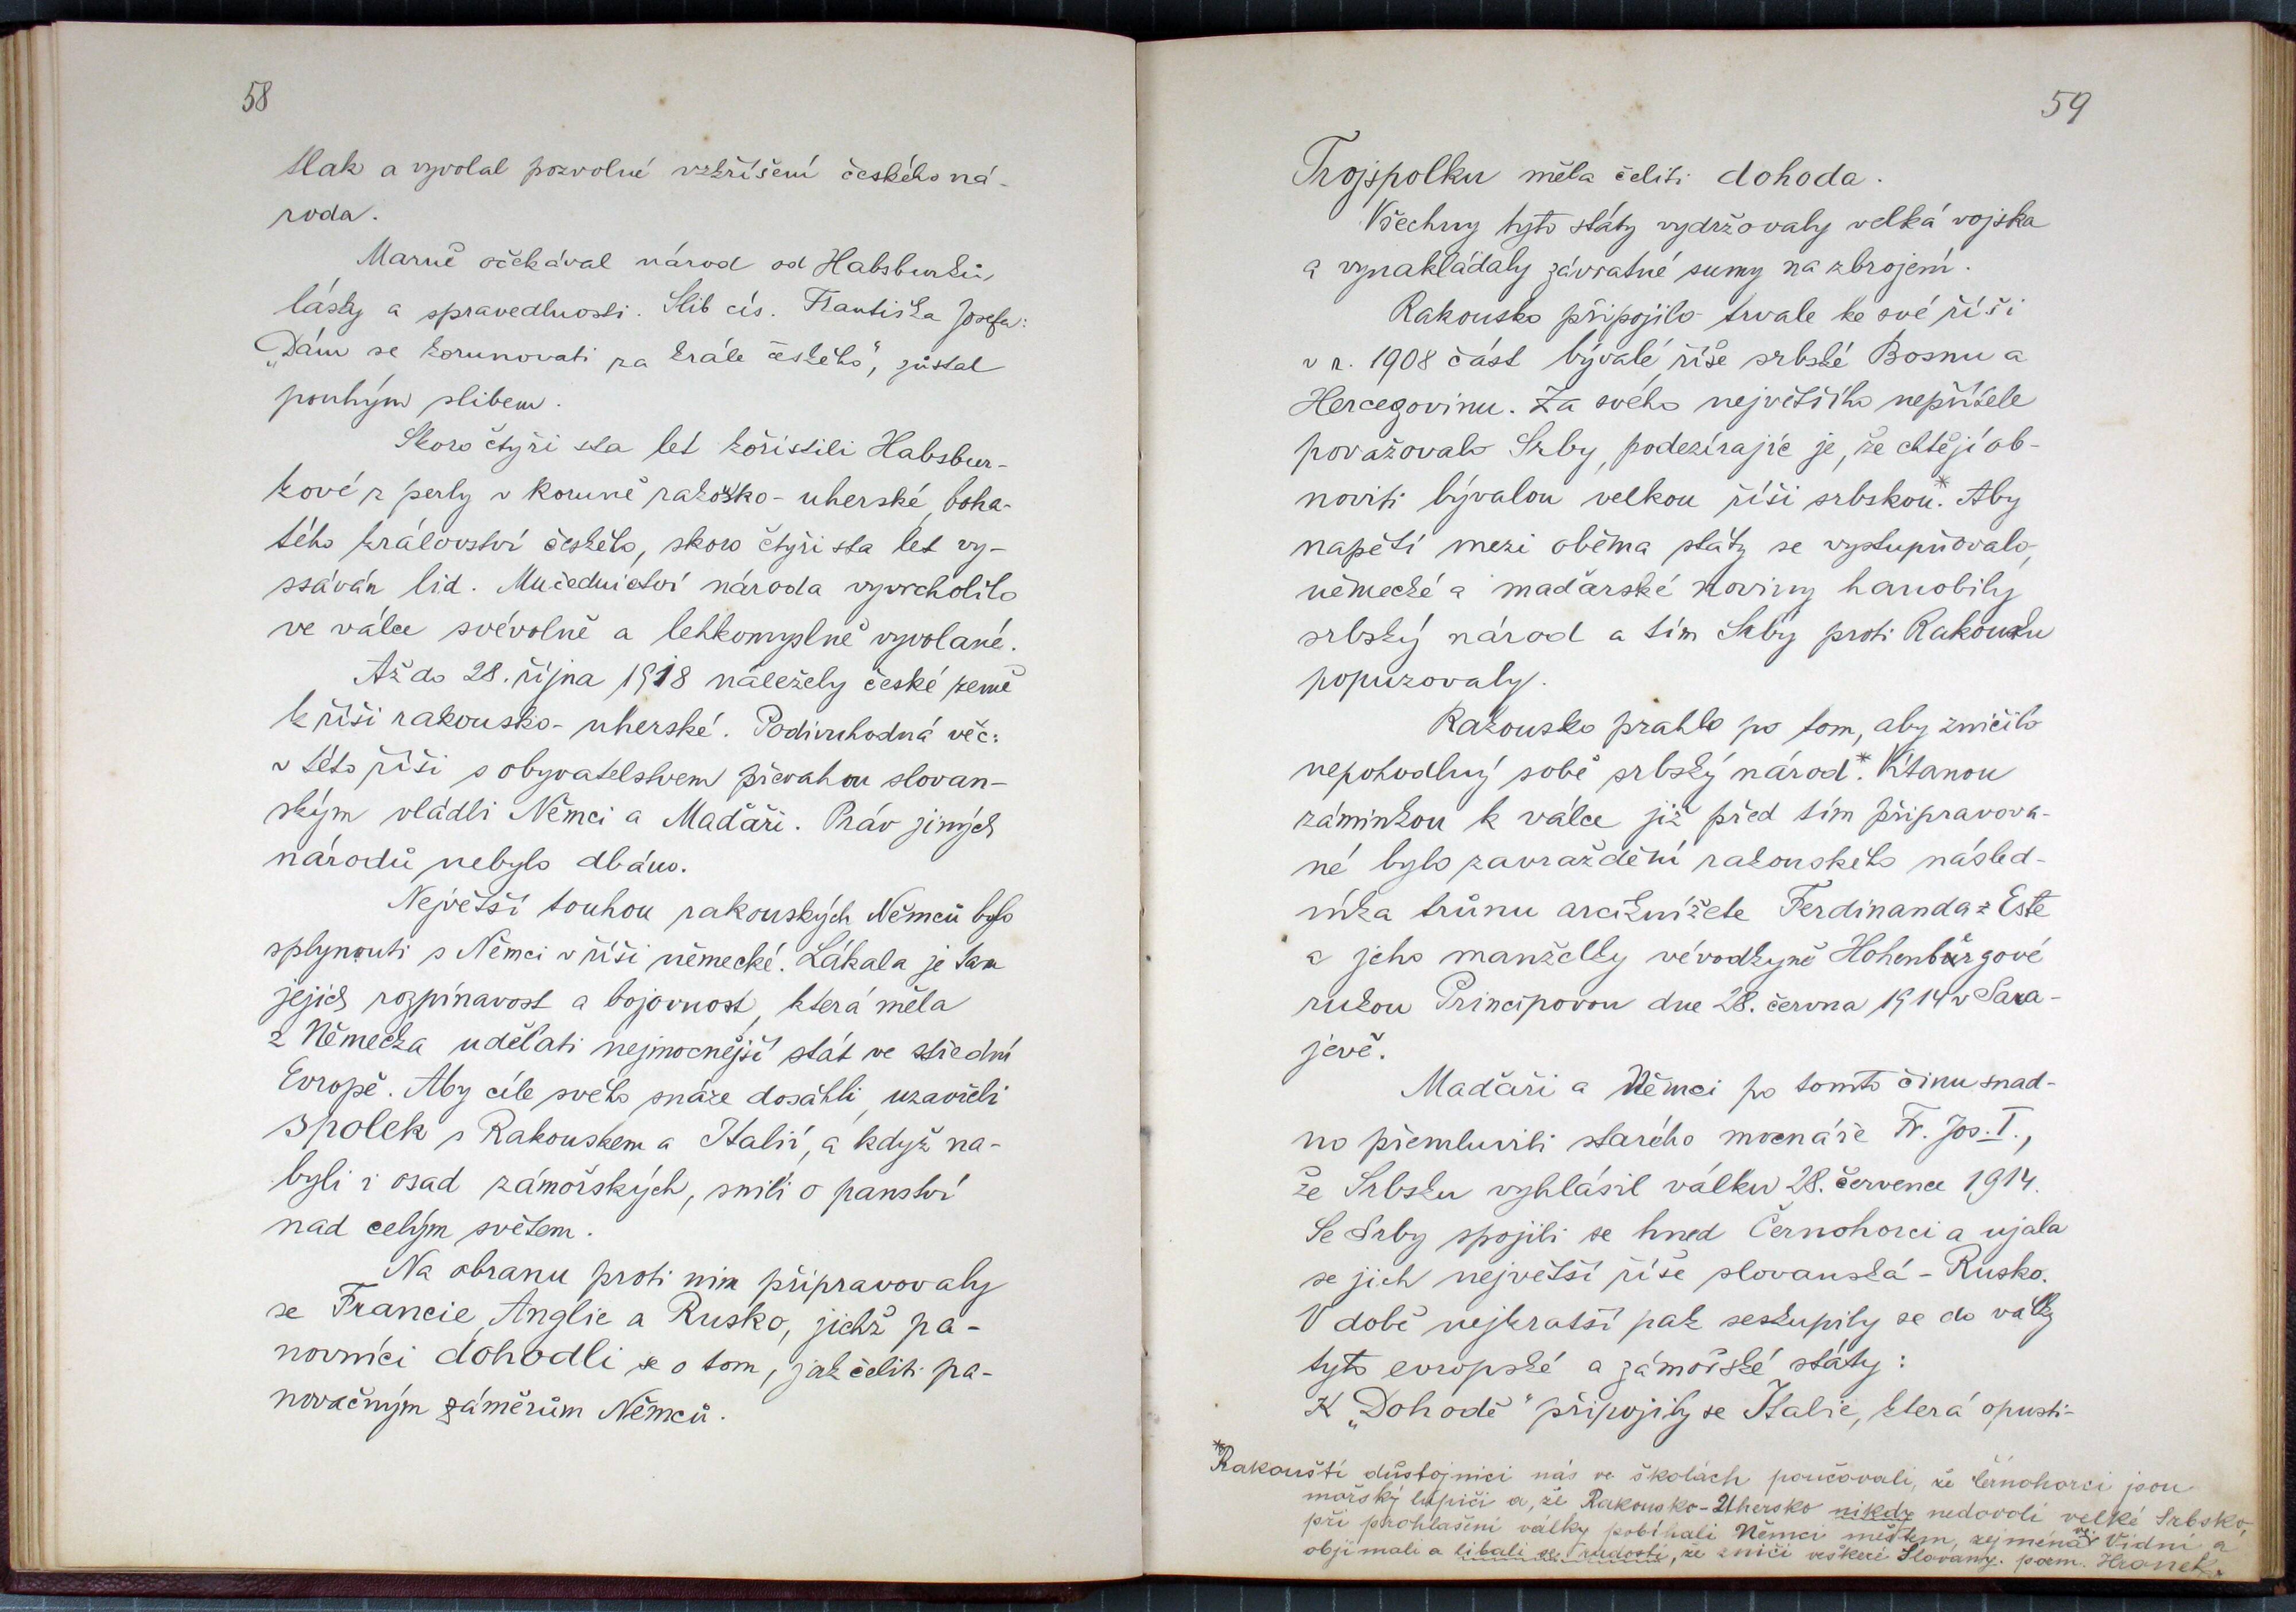 58
tlak a vyvolal pozvolné vzkříšení českého ná-
roda.
Marně očekával národ od Habsburků
lásky a spravedlnosti. Slib cís. Františka Josefa:
„Dám se korunovati za krále českého“, zůstal
pouhým slibem.
Skoro čtyři sta let kořistili Habsbur-
kové z perly v koruně rakousko-uherské, boha-
tého království českého, skoro čtyři sta let vy-
ssáván lid. Mučednictví národa vyvrcholilo
ve válce svévolně a lehkomyslně vyvolané.
Až do 28. října 1918 náležely české země
k říši rakousko-uherské. Podivuhodná věc:
v této říši s obyvatelstvem převahou slovan-
ským vládli Němci a Maďaři. Práv jiných
národů nebylo dbáno.
Největší touhou rakouských Němců bylo
splynouti s Němci v říši německé. Lákala je tam
jejich rozpínavost a bojovnost, která měla
z Německa udělati nejmocnější stát ve střední
Evropě. Aby cíle svého snáze dosáhli, uzavřeli
spolek s Rakouskem a Italií, a když na-
byli i osad zámořských, snili o panství
nad celým světem.
Na obranu proti nim připravovaly
se Francie, Anglie a Rusko, jichž pa-
novníci dohodli se o tom, jak čeliti pa-
novačným záměrům Němců.
59
Trojspolku měla čeliti dohoda.
Všechny tyto státy vydržovaly velká vojska
a vynakládaly závratné sumy na zbrojení.
Rakousko připojilo trvale ke své říši
v r. 1908 část bývalé říše srbské Bosnu a
Hercegovinu. Za svého největšího nepřítele
považovalo Srby, podezírajíc je, že chtějí ob-
noviti bývalou velkou říši srbskou.* Aby
napětí mezi oběma státy se vystupňovalo,
německé a maďarské noviny hanobily
srbský národ a tím Srby proti Rakousku
popuzovaly.
Rakousko prahlo po tom, aby zničilo
nepohodlný sobě srbský národ.* Vítanou
záminkou k válce již před tím připravova-
né bylo zavraždění rakouského násled-
níka trůnu arciknížete Ferdinanda z Este
a jeho manželky vévodkyně Hohenburgové
rukou Principovou dne 28. června 1914 v Sara-
jevě.
Maďaři a Němci po tomto činu snad-
no přemluvili starého mocnáře Fr. Jos. I.,
že Srbsku vyhlásil válku 28. července 1914.
Se Srby spojili se hned Černohorci a ujala
se jich největší říše slovanská - Rusko.
V době nejkratší pak seskupily se do války
tyto evropské a zámořské státy:
K „Dohodě“ připojily se Italie, která opusti-
*Rakouští důstojníci nás ve školách poučovali, že Černohorci jsou
mořský lupiči a, že Rakousko-Uhersko nikdy nedovolí velké Srbsko,
při prohlášení války pobíhali Němci městem, zejména ve Vídni a
objímali a líbali se radostí, že zničí veškeré Slovany. pozn. Hronek.